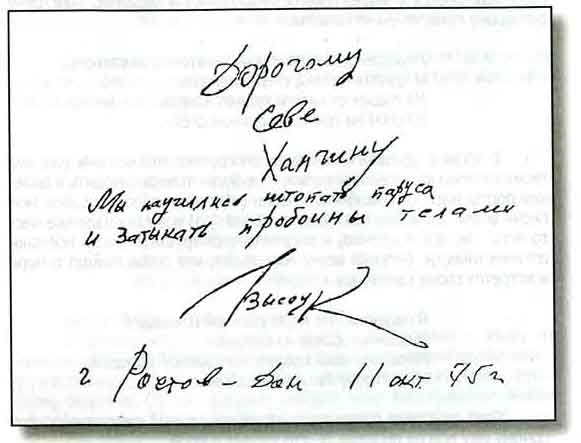 Дорогому
Севе
Ханчину
Мы научились штопать паруса
И затыкать пробоины телами
Высоц
г Ростов-Дон 11 окт 75 г